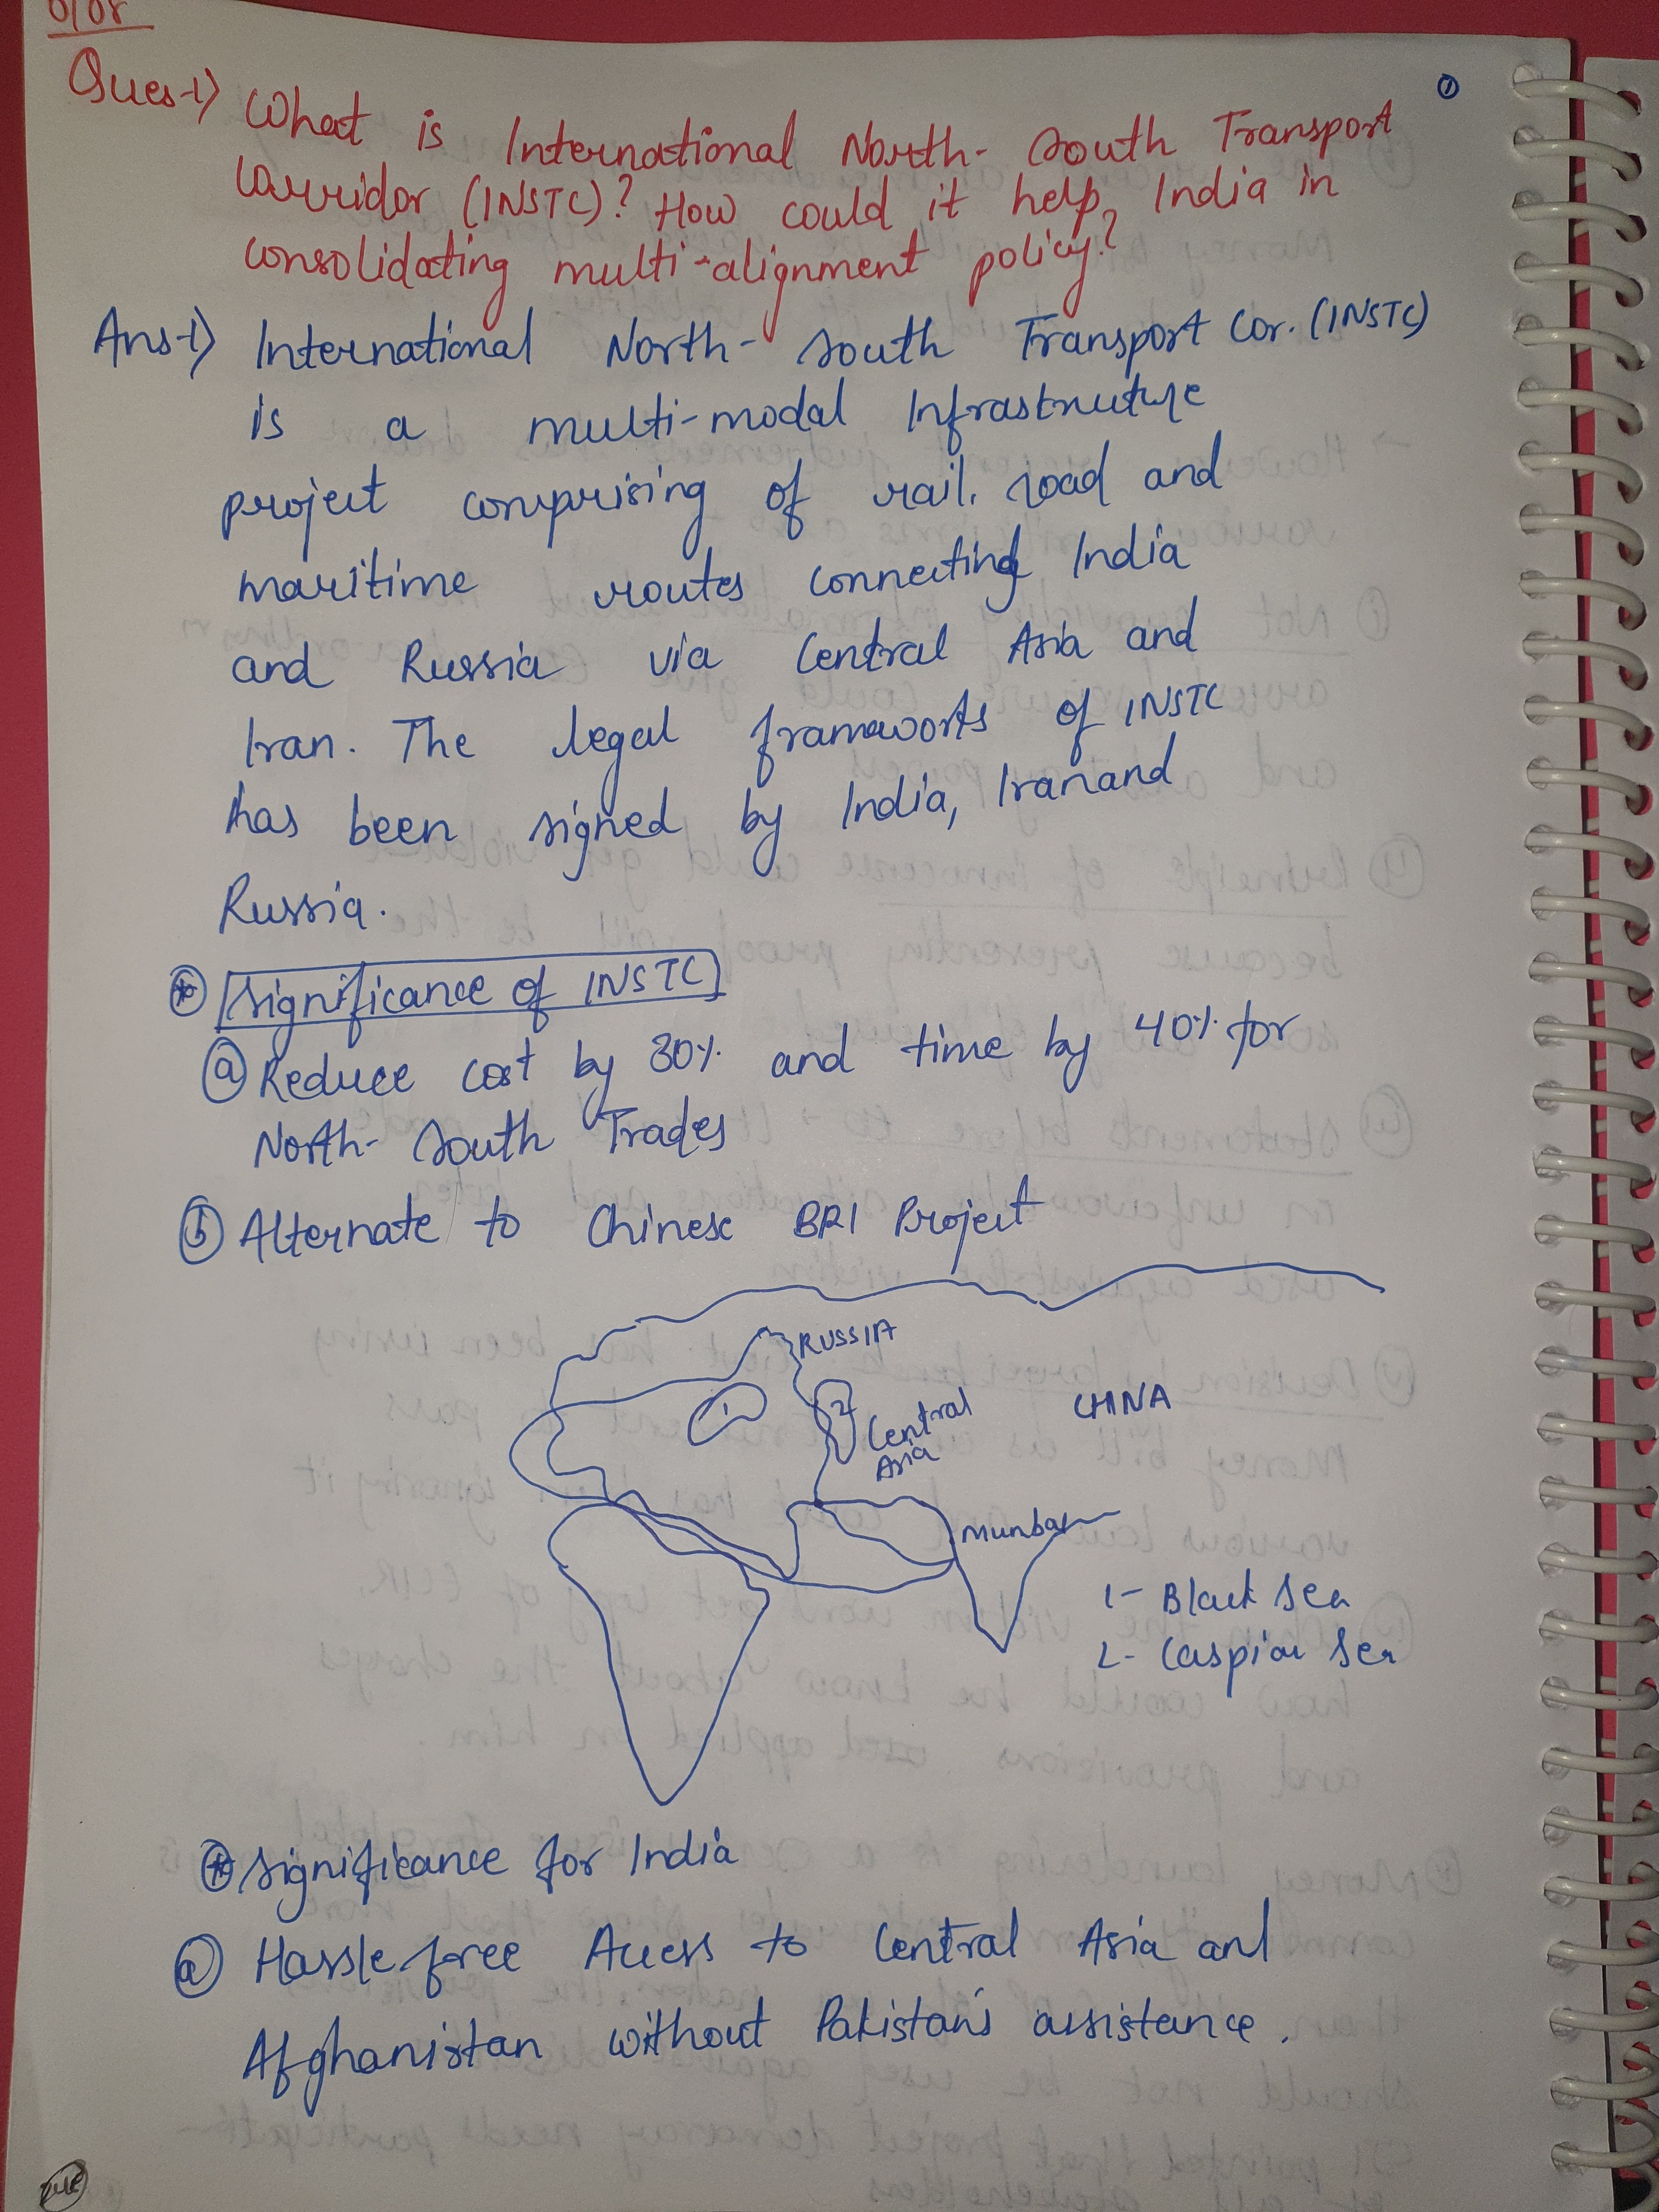 Ques-1) What is International North- South Transport
Corridor (INSTC)? How could it help, India in
consolidating multi-alignment policy?
Ans-1) International North- South Transport Cor. (INSTC)
is a multi-modal Infrastructure
project comprising of rail, road and
maritime routes connecting India
and Russia via Central Asia and
Iran. The legal frameworks of INSTC
has been signed by India, Iran and
Russia.
Significance of INSTC
a) Reduce cost by 30% and time by 40% for
North- South Trades
b) Alternate to Chinese BRI Project
RUSSIA
1
2
Central
Asia
CHINA
Mumbai
1- Black Sea
2- Caspian Sea
Significance for India
a) Hassle free Access to Central Asia and
Afghanistan without Pakistan's assistance.